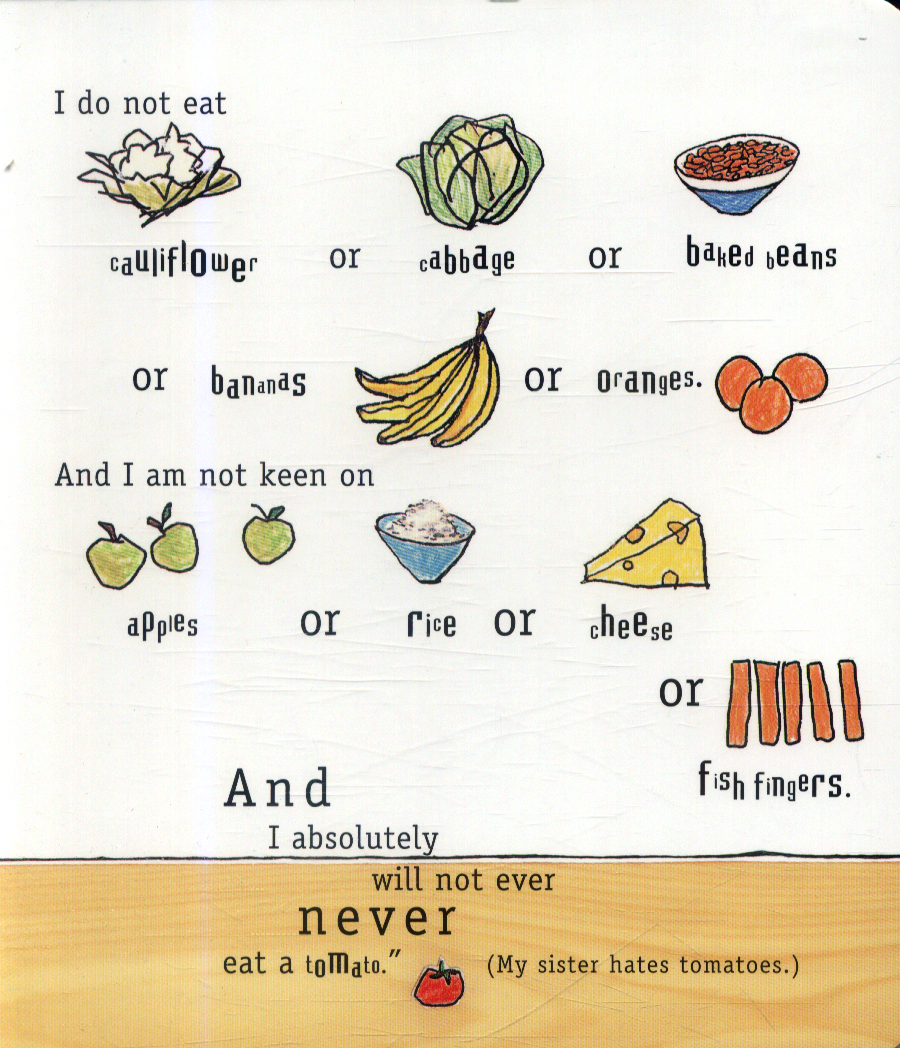 I do not eat
cauliflower or cabbage or baked beans
or bananas or oranges.
And I am not keen on
apples or rice or cheese
or
fish fingers.
And
I absolutely
will not ever
never
eat a tomato.” (My sister hates tomatoes.)